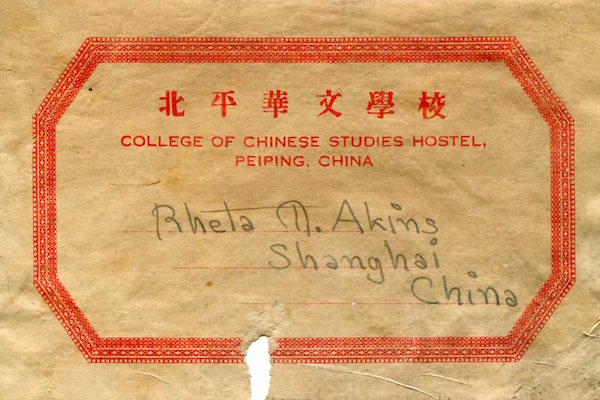 北平華文學校
COLLEGE OF CHINESE STUDIES HOSTEL,
PEIPING, CHINA
Rheta M. Akins
Shanghai
China